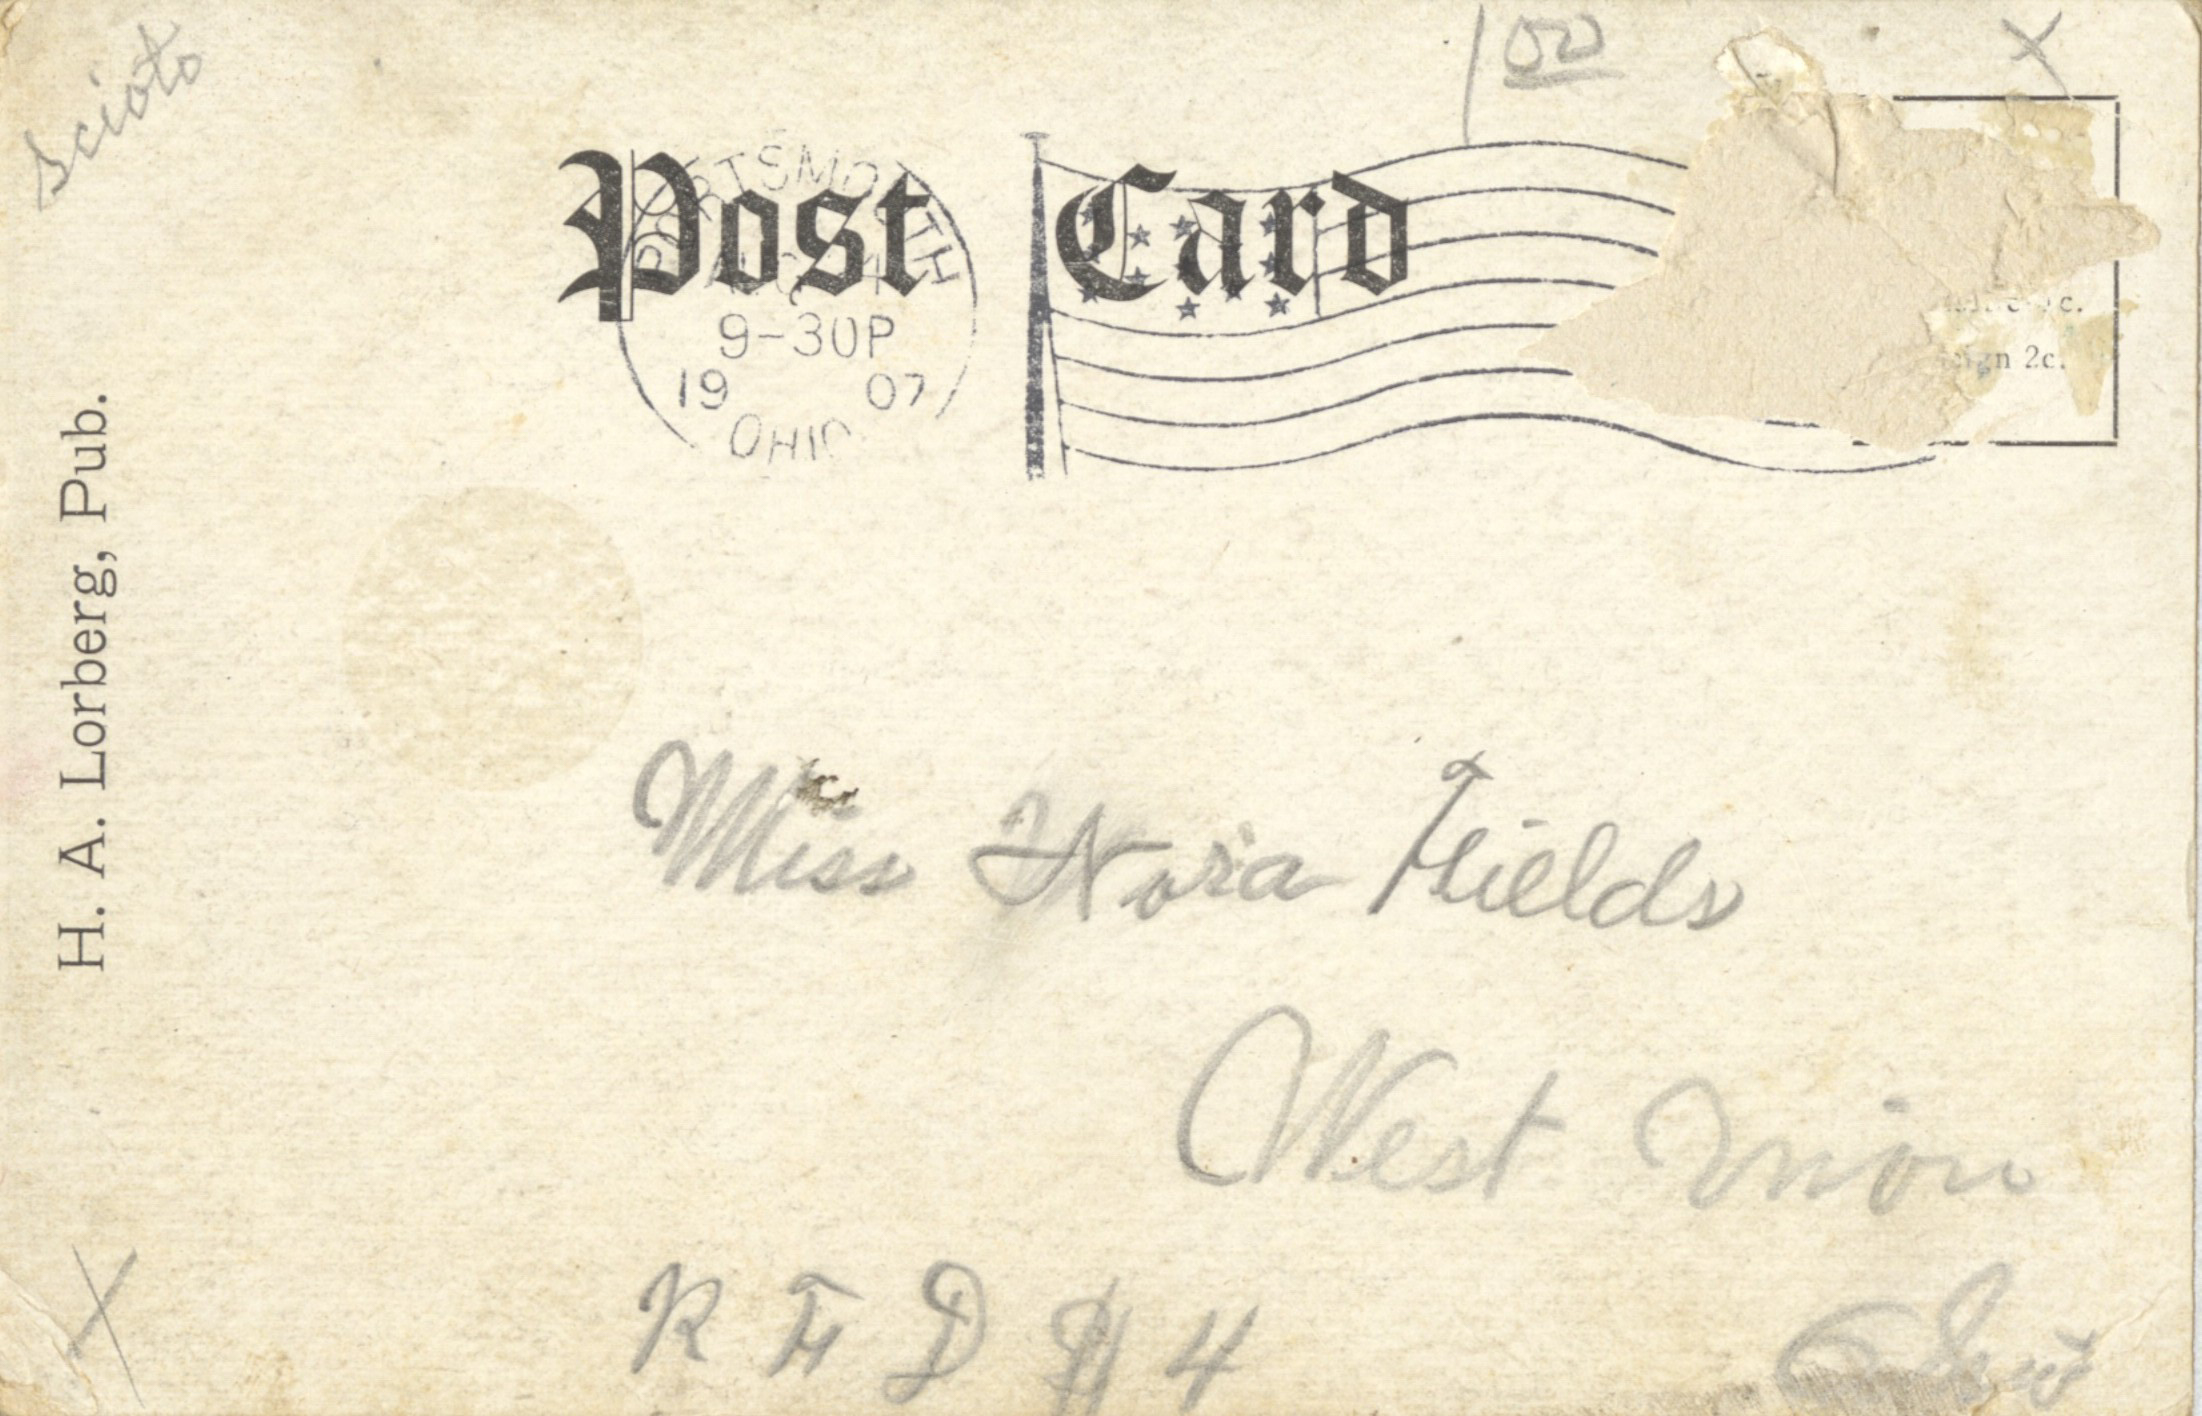 scioto
1 00
X
Post Card
PORTSMOUTH
9-30P
19 07
OHIO
2c.
H. A. Lorberg, Pub.
Miss Nora Fields
West Union
R F D # 4
Ohio
X